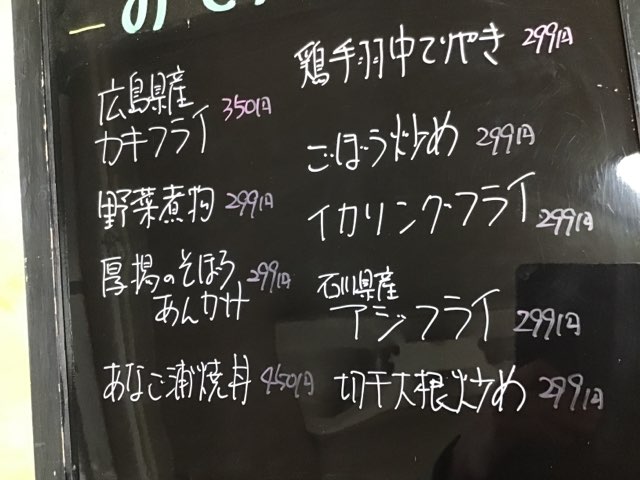 広島県産
カキフライ 350円
野菜煮物 299円
厚揚のそぼろ 299円
あんかけ
あなご蒲焼丼 450円
鶏手羽中てりやき 299円
ごぼう炒め 299円
イカリングフライ 299円
石川県産
アジフライ 299円
切干大根炒め 299円